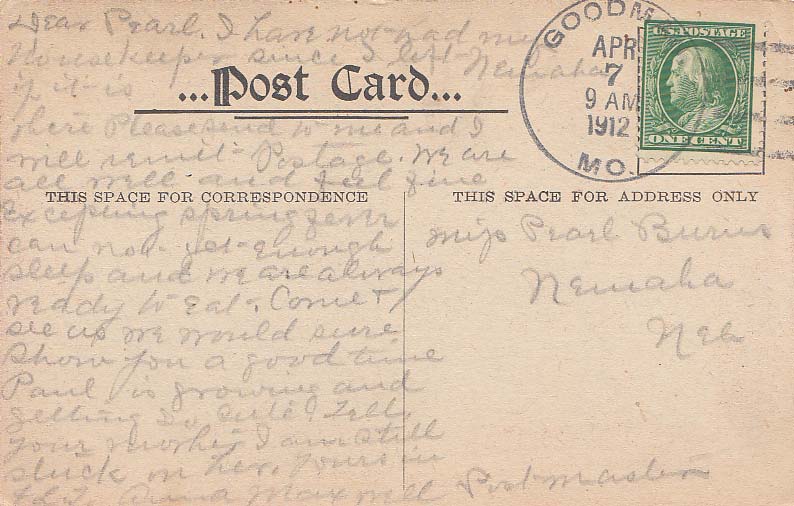 Dear Pearl. I have not had my
Housekeeper since I left Nemaha
if it is
...Post Card...
there Please send to me and I
will remit Postage. We are
all well and feel fine
THIS SPACE FOR CORRESPONDENCE
Excepting spring fever
can not get enough
sleep and we are always
ready to eat. Come &
see us we would sure
show you a good time
Paul is growing and
getting so cute. Tell
your mother I am still
stuck on her. Yours in
Anna Maxwell
Postmaster
GOODM
APR
7
9 AM
1912
MO.
U.S. POSTAGE
ONE CENT
THIS SPACE FOR ADDRESS ONLY
Miss Pearl Burns
Nemaha
Neb